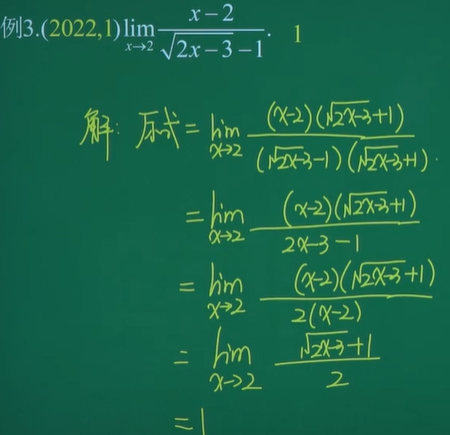 例3.(2022,1) lim x→2 (x−2)/(√(2x−3)−1). 1
解: 原式= lim x→2 (x-2)(√(2x-3)+1)/((√(2x-3)-1)(√(2x-3)+1)).
= lim x→2 (x-2)(√(2x-3)+1)/(2x-3-1)
= lim x→2 (x-2)(√(2x-3)+1)/(2(x-2))
= lim x→2 (√(2x-3)+1)/2
= 1